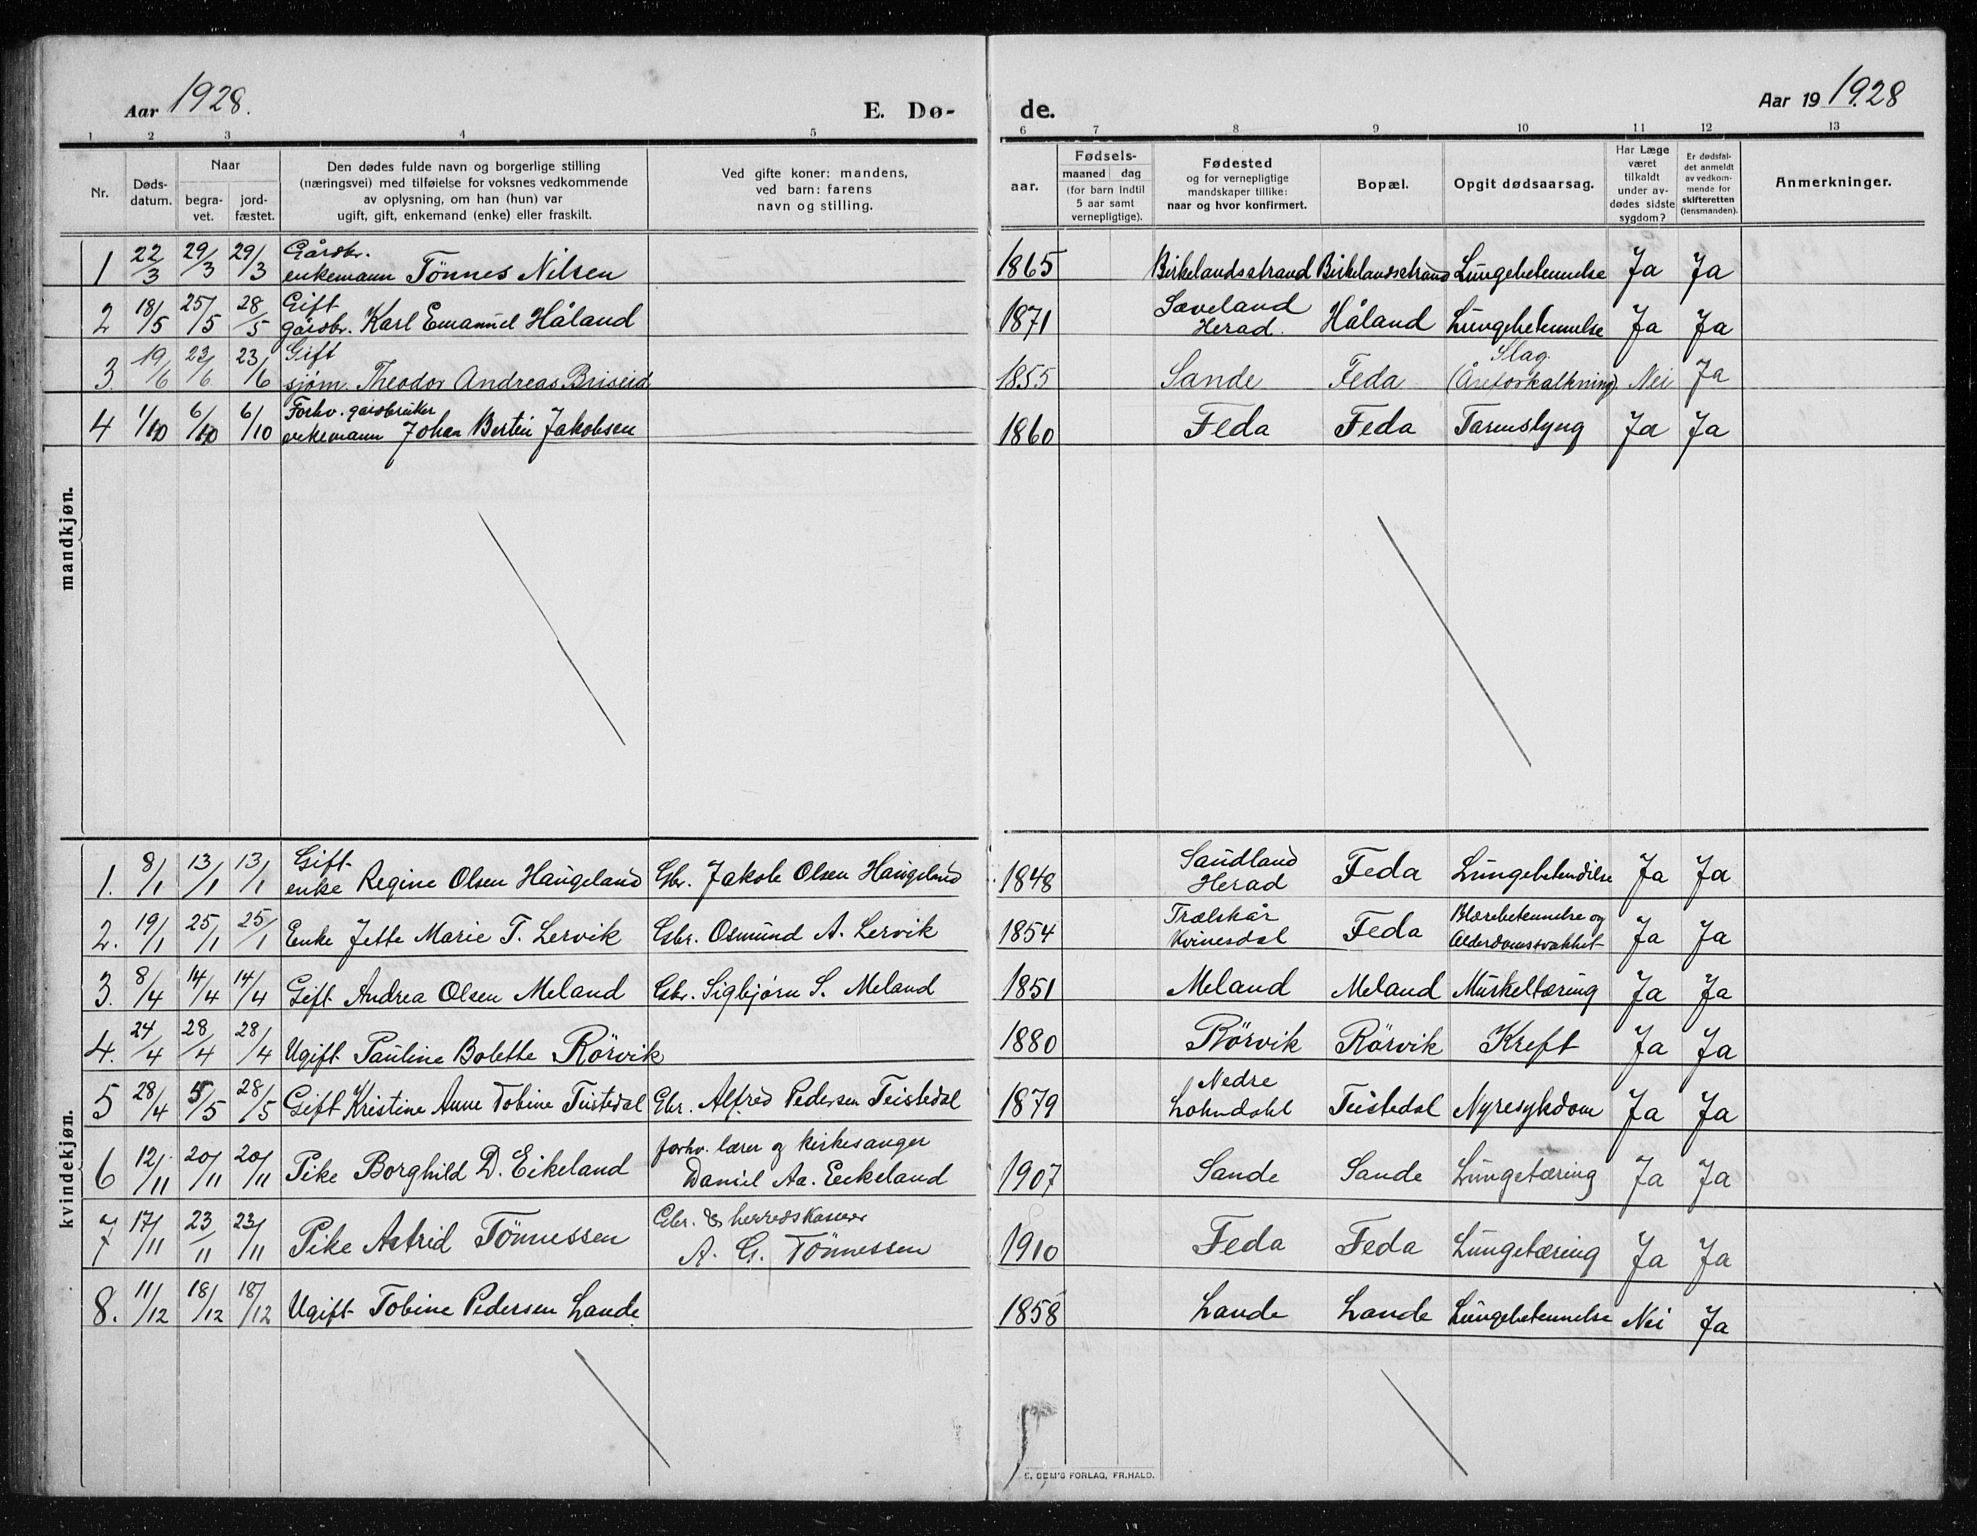 Aar 1928. E. Dø- de. Aar 19 1928
1 2 3 4 5 6 7 8 9 10 11 12 13
Nr. Døds-datum. Naar begra-vet. jord-fæstet. Den dødes fulde navn og borgerlige stilling (næringsvei) med tilføielse for voksnes vedkommende av oplysning, om han (hun) var ugift, gift, enkemand (enke) eller fraskilt. Ved gifte koner: mandens, ved barn: farens navn og stilling. aar. Fødsels- maaned dag (for barn indtil 5 aar samt vernepligtige). Fødested og for vernepligtige mandskaper tillike: naar og hvor konfirmert. Bopæl. Opgit dødsaarsag. Har Læge været tilkaldt under av-dødes sidste sygdom? Er dødsfal-det anmeldt av vedkom-mende for skifteretten (lensmanden). Anmerkninger.
mandkjøn.
1 22/3 29/3 29/3 Gårdbr. enkemann Tönnes Nilsen 1865 Birkelandsstrand Birkelandsstrand Lungebetennelse Ja Ja
2 18/5 25/5 28/5 Gift gårdbr. Karl Emanuel Håland 1871 Sæveland Herad. Håland Lungebetennelse Ja Ja
3. 19/6 23/6 23/6 Gift sjøm. Theodor Andreas Briseid 1855 Sande Feda Slag. (Åreforkalkning) Nei Ja
4 1/10 6/10 6/10 Forhv. gårdbruker enkemann Johan Bertin Jakobsen 1860 Feda Feda Tarmslyng Ja Ja
kvindekjøn.
1. 8/1 13/1 13/1 Gift enke Regine Olsen Haugeland Gbr. Jakob Olsen Haugeland 1848 Saudland Herad Feda Lungebetendelse Ja Ja
2. 19/1 25/1 25/1 Enke Jette Marie T. Lervik Gbr. Osmund A. Lervik 1854 Trælskår Kvinesdal Feda Blærebetennelse og Alderdomssvakhet Ja Ja
3. 8/4 14/4 14/4 Gift Andrea Olsen Meland Gbr. Sigbjørn S. Meland 1851 Meland Meland Muskeltæring Ja Ja
4. 24/4 28/4 28/4 Ugift Pauline Bolette Rörvik 1880 Rörvik Rörvik Kreft Ja Ja
5 28/4 5/5 28/5 Gift Kristine Anne Tobine Teistedal Gbr. Alfred Pedersen Teistedal 1879 Nedre Lohndahl Teistedal Nyresykdom Ja Ja
6 12/11 20/11 20/11 Pike Borghild D. Eikeland forhv. lærer og kirkesanger Daniel Aa. Eikeland 1907 Sande Sande Lungetæring Ja Ja
7 17/11 23/11 23/11 Pike Astrid Tönnessen Gbr. & herredskaserer A. G. Tönnessen 1910 Feda Feda Lungetæring Ja Ja
8. 11/12 18/12 18/12 Ugift Tobine Pedersen Lande 1858 Lande Lande Lungebetennelse Nei Ja
E. SEM'S FORLAG, FR.HALD.